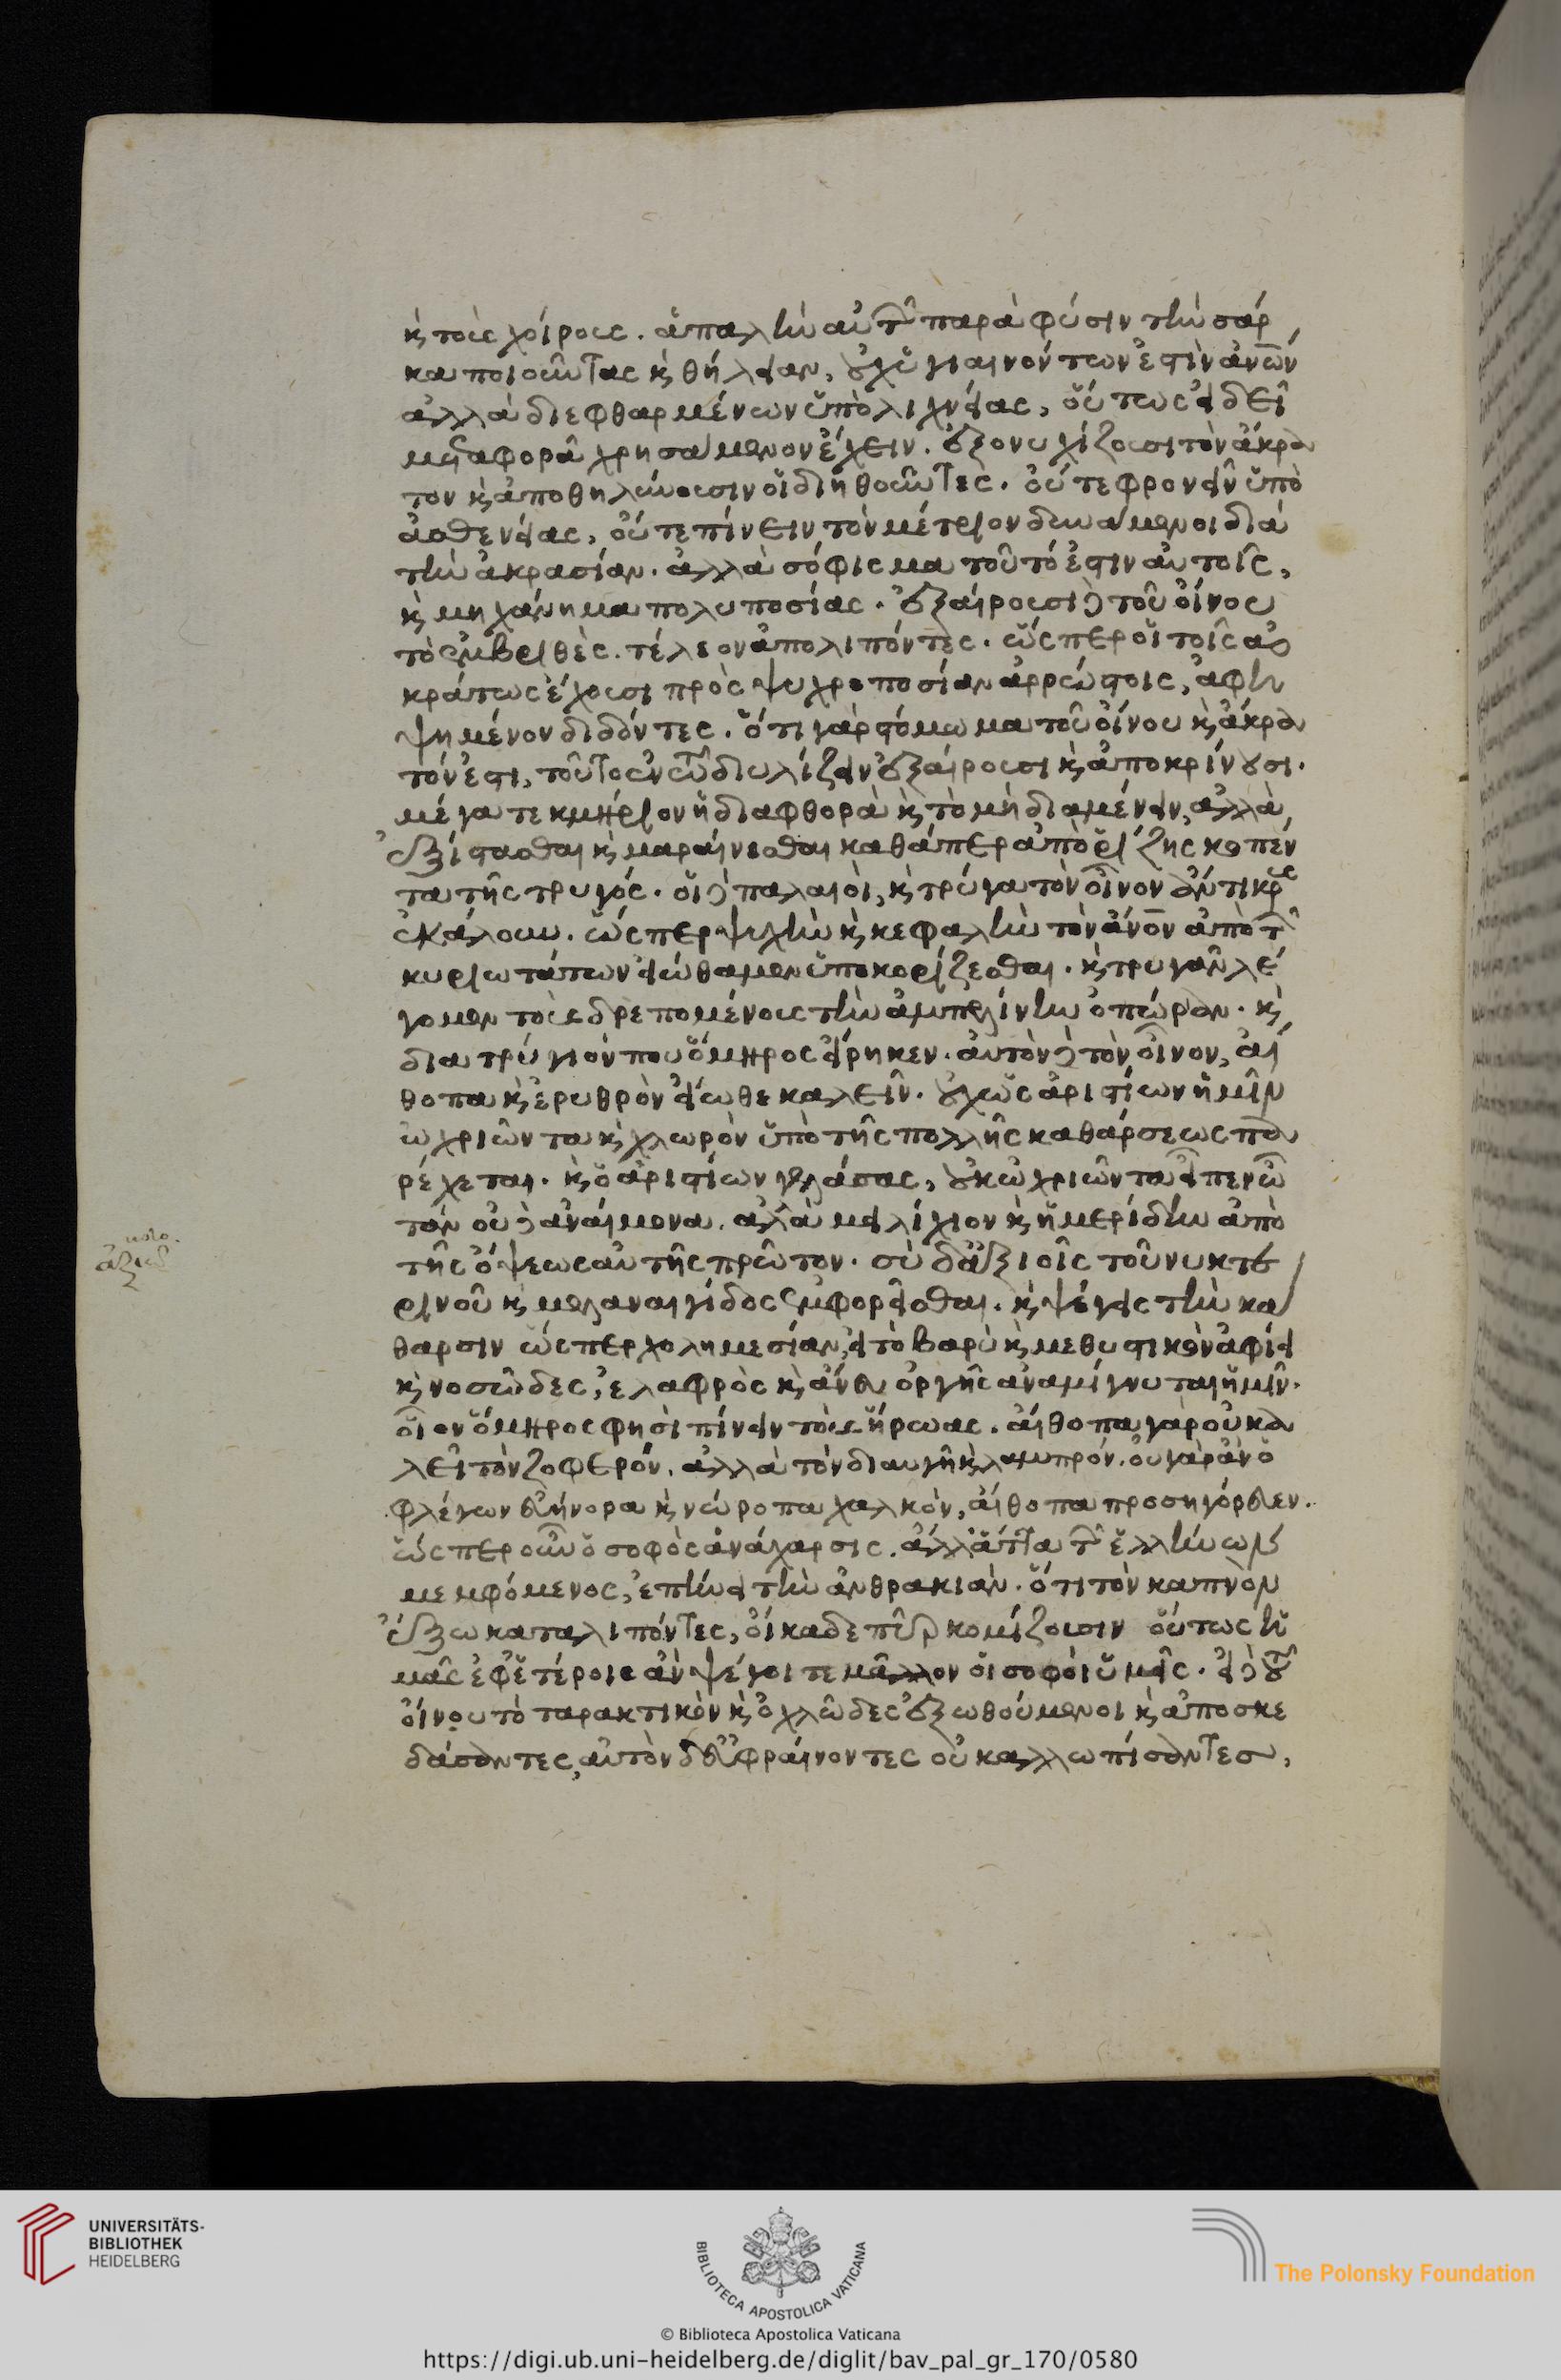 κ̀ τοὺς χοίρους. ἁπαλὴν αὐτῶν παρὰ φύσιν τὴν σάρ
κα ποιοῦντας κ̀ θήλειαν, οὐχ ὑγιαινόντων ἐστὶν ἀνων̅
ἀλλὰ διεφθαρμένων ὑπὸ λιχνείας, οὕτως εἰ δεῖ
μεταφορᾶ χρησάμενον ἔχειν. ἐξονυχίζουσι τὸν ἄκρα
τον κ̀ ἀποθηλύνουσιν οἱ διηθοῦντες. οὔτε φρονεῖν ὑπὸ
ἀσθενείας, οὔτε πίνειν τὸν μέτριον δυνάμενοι διὰ
τὴν ἀκρασίαν. ἀλλὰ σόφισμα τοῦτό ἐστιν αὐτοῖς,
κ̀ μηχάνημα πολυποσίας. ἐξαίρουσι δὲ τοῦ οἴνου
τὸ ἐμβριθὲς. τέλειον ἀπολιπόντες. ὥσπερ οἱ τοῖς ἀ
κράτως ἔχουσι πρὸς ψυχροποσίαν ἀρρώστοις, ἀφε
ψημένον διδόντες. ὅτι γὰρ στόμωμα τοῦ οἴνου κ̀ ἄκρα
τόν ἐστι, τοῦτο ἐν τῶ διυλίζειν ἐξαίρουσι κ̀ ἀποκρίνουσι.
μέγα τεκμήριον ἡ διαφθορὰ κ̀ τὸ μὴ διαμένειν, ἀλλὰ
ἐξίστασθαι κ̀ μαραίνεσθαι καθάπερ ἀπὸ ῥίζης κοπέν
τα τῆς τρυγός. οἱ δὲ παλαιοὶ, κ̀ τρύγα τὸν οἶνον ἄντικρς
ἐκάλουν. ὥσπερ ψυχὴν κ̀ κεφαλὴν τὸν ἄνον̅ ἀπὸ τῶν
κυριωτάτων εἰώθαμεν ὑποκορίζεσθαι. κ̀ τρυγᾶν λέ
γομεν τοὺς δρεπομένους τὴν ἀμπελίνην ὀπώραν. κ̀
διατρύγιόν που ὅμηρος εἴρηκεν. αὐτὸν δὲ τὸν οἶνον, αἴ
θοπα κ̀ ἐρυθρὸν εἴωθε καλεῖν. οὐχ ὡς ἀριστίων ἡμῖν
ὠχριῶντα κ̀ χλωρὸν ὑπὸ τῆς πολλῆς καθάρσεως πα
ρέχεται. κ̀ ὁ ἀριστίων γελάσας, οὐκ ὠχριῶντα εἶπεν ὦ
τάν οὐδὲ ἀναίμονα. ἀλλὰ μειλίχιον κ̀ ἡμερίδην ἀπὸ
τῆς ὄψεως αὐτῆς πρῶτον. σὺ δ' ἀξιοῖς τοῦ νυκτε
ρινοῦ κ̀ μελαναιγίδος ἐμφορεῖσθαι. κ̀ ψέγεις τὴν κά
θαρσιν ὥσπερ χολημεσίαν, εἰ τὸ βαρὺ κ̀ μεθυστικὸν ἀφίει
κ̀ νοσῶδες, ἐλαφρὸς κ̀ ἄνευ ὀργῆς ἀναμίγνυται ἡμῖν.
οἷον ὅμηρος φησὶ πίνειν τοὺς ἥρωας. αἴθοπα γὰρ οὐ κα
λεῖ τὸν ζοφερόν, ἀλλὰ τὸν διαυγῆ κ̀ λαμπρόν. οὐ γὰρ ἂν ὁ
φλέγων εὐήνορα κ̀ νώροπα χαλκὸν, αἴθοπα προσηγόρευεν.
ὥσπερ οὖν ὁ σοφὸς ἀνάχαρσις. ἀλλ' ἄττα τῶν ἑλλήνων
μεμφόμενος, ἐπῄνει τὴν ἀνθρακιὰν. ὅτι τὸν καπνὸν
ἔξω καταλιπόντες, οἴκαδε πῦρ κομίζουσιν οὕτως ἡ
μᾶς ἐφ' ἑτέροις ἂν ψέγοιτε μᾶλλον οἱ σοφοὶ ὑμεῖς. εἰ δὲ τοῦ
οἴνου τὸ ταρακτικὸν κ̀ ὀχλῶδες ἐξωθούμενοι κ̀ ἀποσκε
δάσαντες, αὐτὸν δ' εὐφραίνοντες οὐ καλλωπίσαντεσ,
UNIVERSITÄTS-
BIBLIOTHEK
HEIDELBERG
BIBLIOTECA APOSTOLICA VATICANA
The Polonsky Foundation
© Biblioteca Apostolica Vaticana
https://digi.ub.uni-heidelberg.de/diglit/bav_pal_gr_170/0580